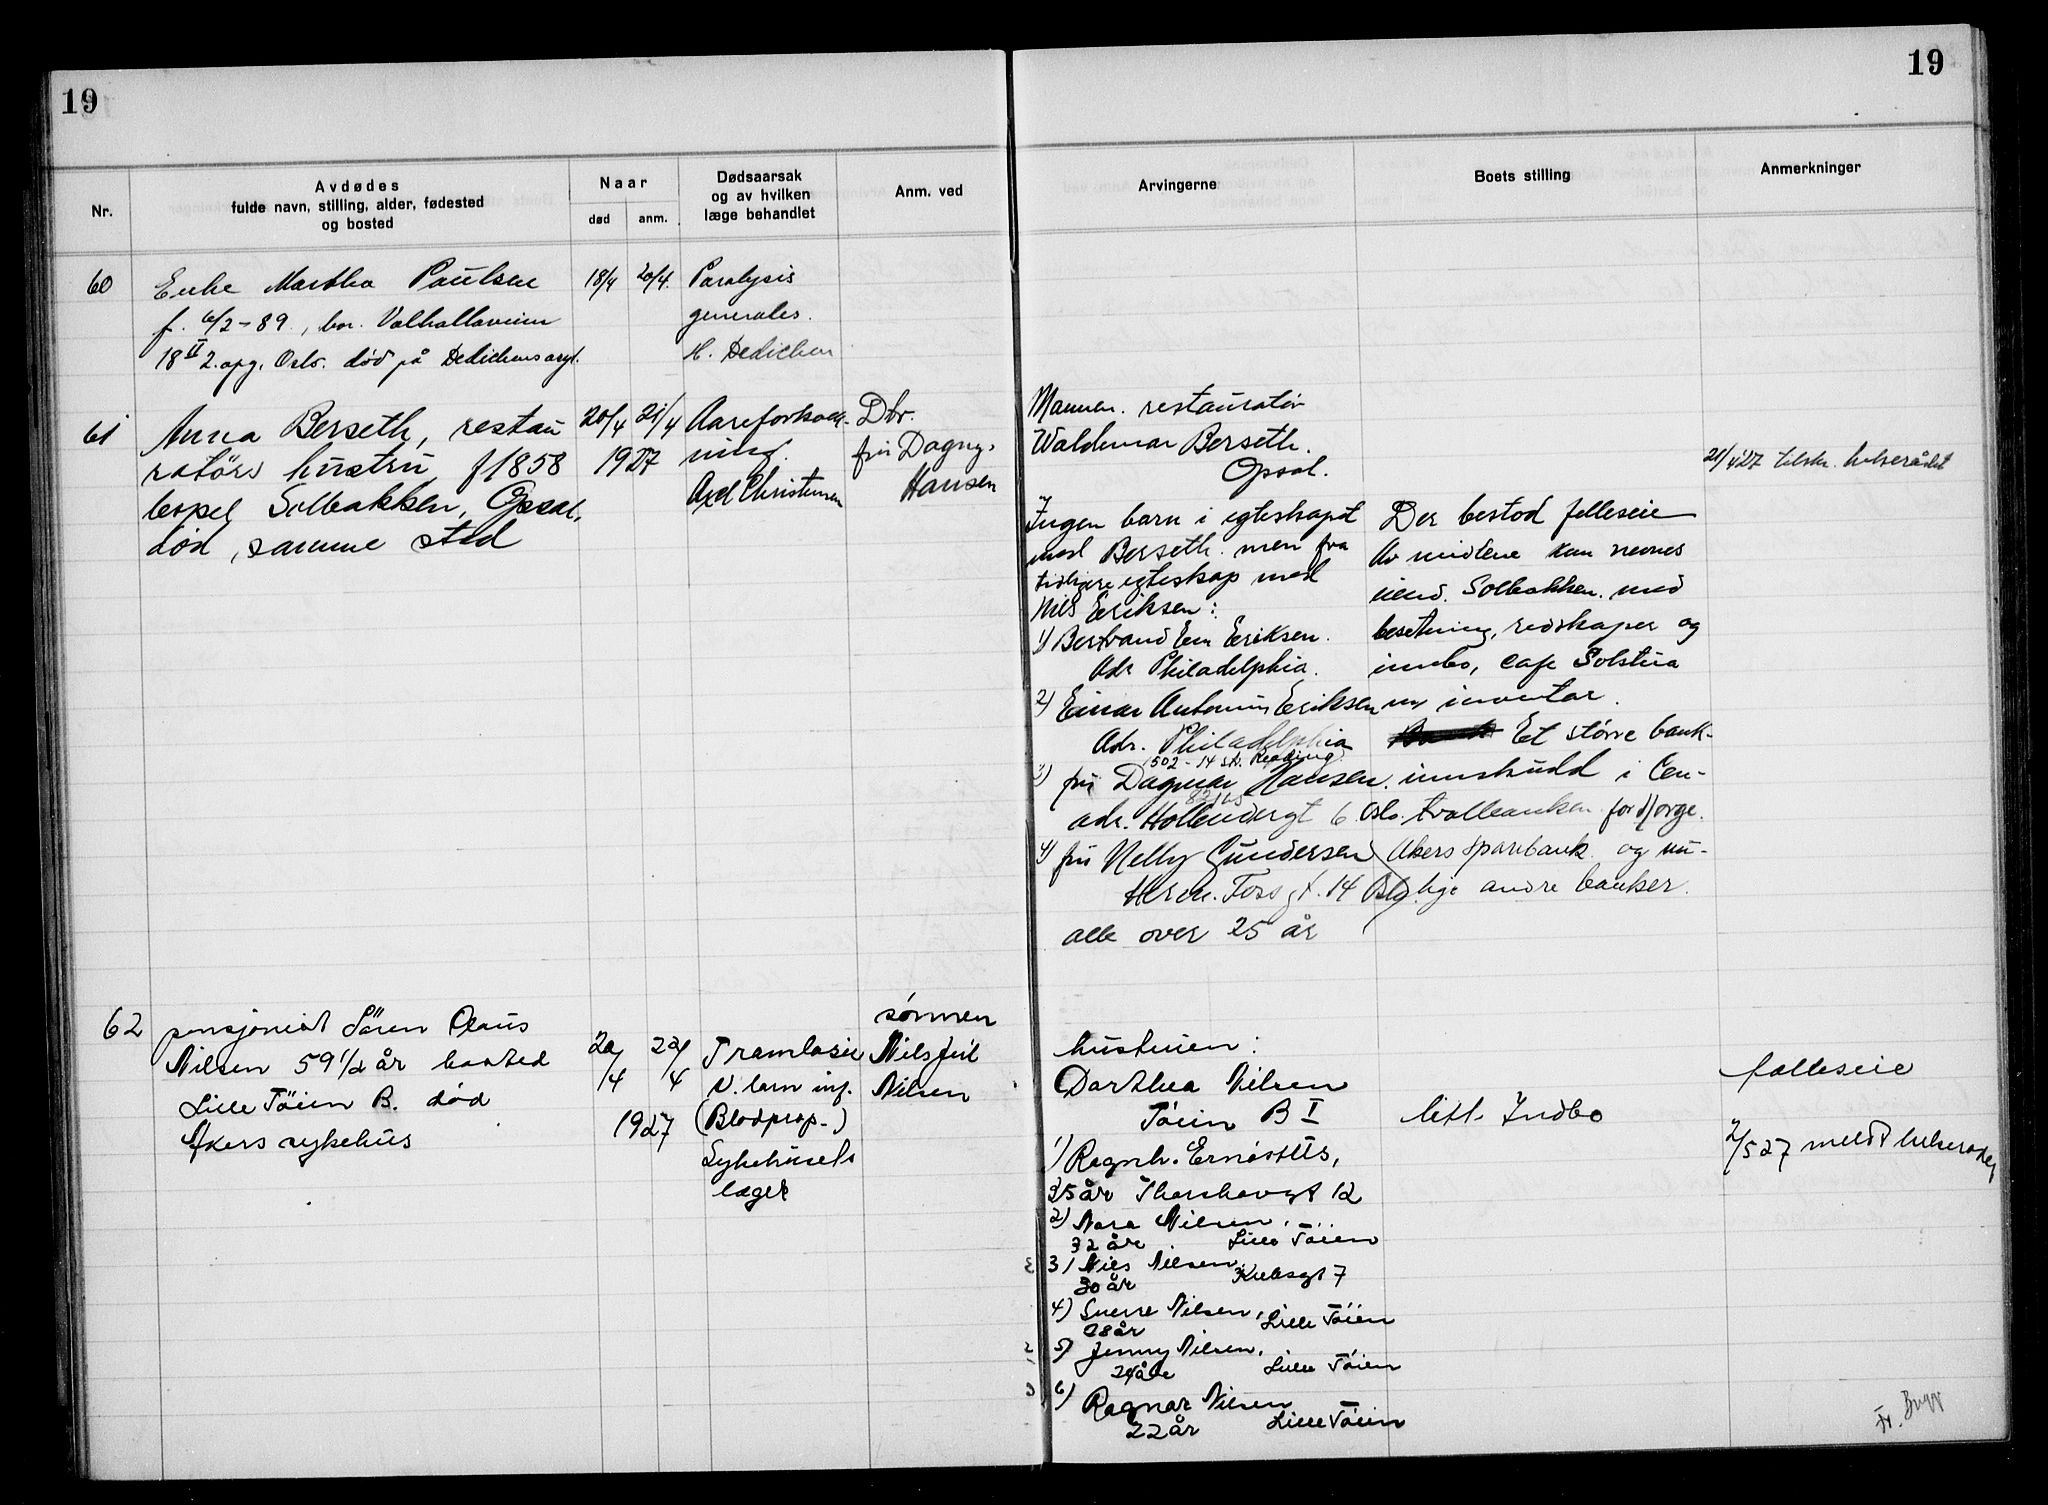 19
19
Nr.
Avdødes
fulde navn, stilling, alder, fødested
og bosted
Naar
død
anm.
Dødsaarsak
og av hvilken
læge behandlet
Anm. ved
Arvingerne
Boets stilling
Anmerkninger
60
Enke Martha Paulsen
f. 6/2-89, bor. Valhallaveien
18 II 2. opg. Oslo. død på Dedichens asyl.
18/4
20/4.
Paralysis
generales.
H. Dedichen
61
Anna Berseth, restau
ratørs hustru f 1858
bopel Solbakken, Opsal,
død, samme sted
20/4
21/4
1927
Aareforkalk-
ning.
Axel Christensen
Dtr.
fru Dagny
Hansen
Mannen. restauratør
Waldemar Berseth.
Opsal.
Ingen barn i egteskapet
med Berseth. men fra
tidligere egteskap med
Nils Eriksen:
1) Bertrand Em Eriksen.
Adr Philadelphia.
2) Einar Antonius Eriksen
Adr. Philadelphia
502 - 14 st. Reading
3) fru Dagmar Hansen.
adr. Hollendergt 6 Oslo.
4) fru Nelly Gundersen
Herm. Foss gt. 14 Oslo.
alle over 25 år
Der bestod felleseie
Av midlene kan nevnes
eiend. Solbakken. med
besetning, redskaper og
innbo, Cafe Solstua
m/ inventar.
Et større bank-
innskudd i Cen-
tralbanken for Norge.
Akers sparebank og mu-
lige andre banker.
21/4 27 tilskr. helserådet
62
pensjonist Sören Olaus
Nilsen 59 1/2 år bosted
Lille Töien B. død
Akers sykehus
20/4
22/4
1927
V. lam inf.
(Blodprop-)
Sykehusets
læger
sønnen
Nils Juul
Nilsen
hustruen:
Dorthea Nilsen
Töien B I
1) Ragnh. Ernöstus,
35 år Thorshavgt 12
2) Nora Nilsen,
32 år Lille Töien
3) Nils Nilsen,
30 år Kielsgt 7
4) Sverre Nilsen,
28 år Lille Töien
5) Jenny Nilsen,
24 år Lille Töien
6) Ragnar Nilsen
22 år Lille Töien
litt Indbo
fælleseie
2/5 27 meldt helserådet